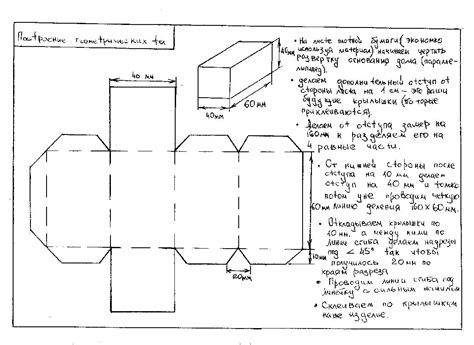 Построение геометрических тел
• На листе плотной бумаги (экономно
используй материал) начинаем чертить
развертку основания дома (паралле-
липипед).
• делаем дополнительный отступ от
стороны листа на 1 см – это наши
будущие крылышки (которые
приклеиваются).
• Делаем от отступа замер на
160мм и разделяем его на
4 равные части.
• От нижней стороны после
отступа на 10 мм делаем
отступ на 40 мм и только
потом уже проводим четкую
линию деления 160х60мм.
• Откладываем крылышки по
10 мм, а между ними по
линии сгиба делаем надрезы
под < 45° так чтобы
получилось 20мм по
краям разреза
• Проводим линии сгиба под
линейку с сильным нажимом
• Склеиваем по крылышкам
наше изделие.
40 мм
45мм
60мм
40мм
60мм
10мм
20мм